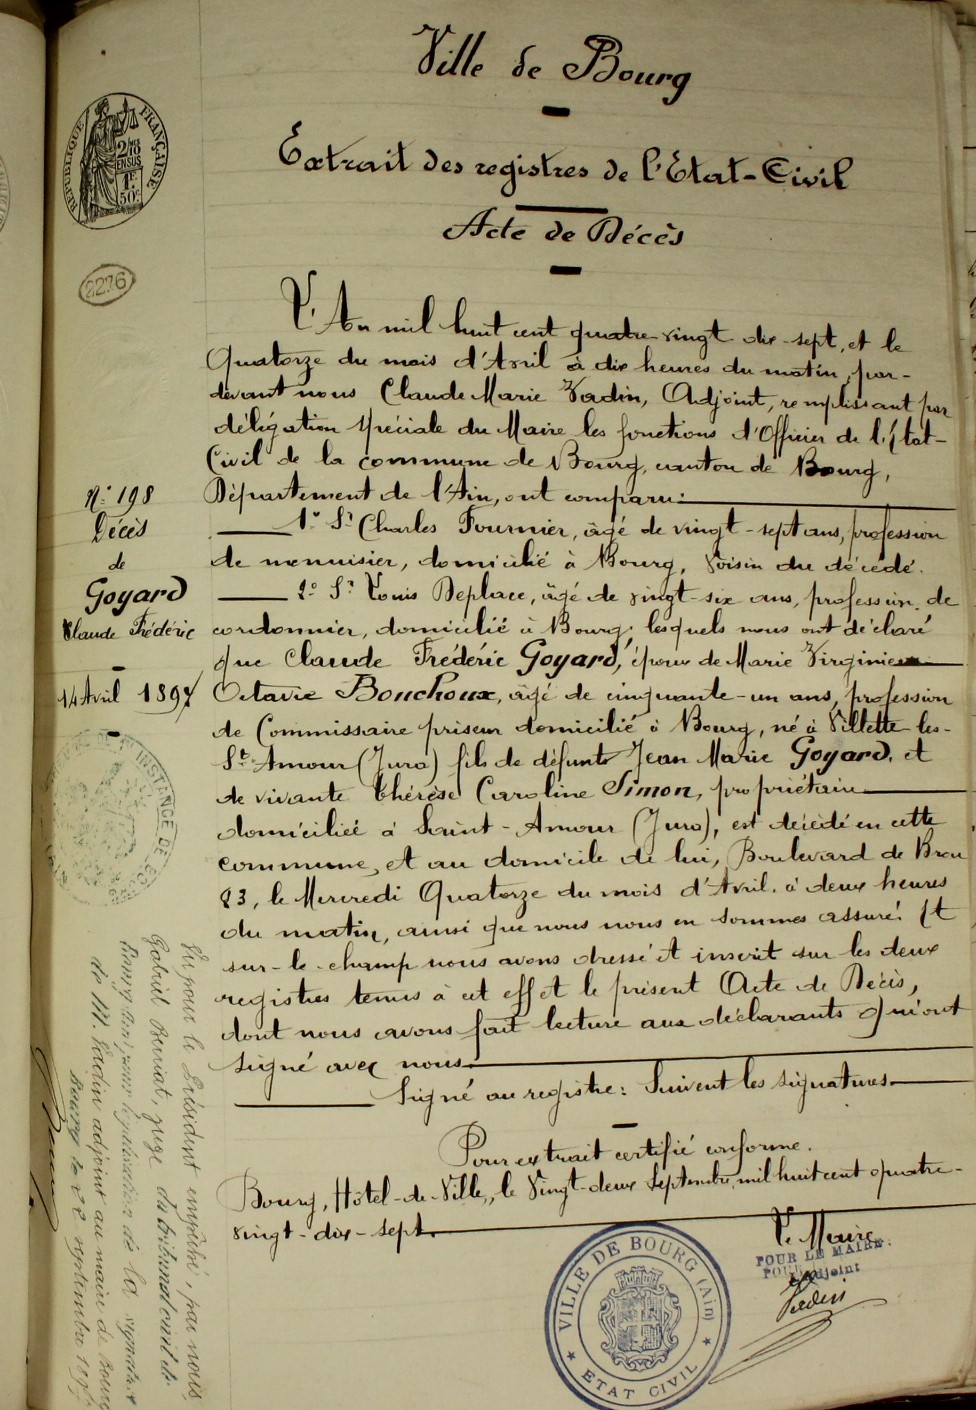 Ville de Bourg
Extrait des registres de l'Etat-Civil
Acte de Décès
L'An mil huit cent quatre-vingt dix-sept, et le
Quatorze du mois d'Avril à dix heures du matin, par-
devant nous Claude Marie Vadin, Adjoint, remplissant par
délégation spéciale du Maire les fonctions d'Officier de l'Etat-
Civil de la commune de Bourg, canton de Bourg,
Département de l'Ain, ont comparu:
1º Sr Charles Fournier, âgé de vingt-sept ans, profession
de menuisier, domicilié à Bourg, voisin du décédé.
2º Sr Louis Deplace, âgé de vingt-six ans, profession de
cordonnier, domicilié à Bourg; lesquels nous ont déclaré
que Claude Frédéric Goyard, époux de Marie Virginie
Octavie Bouchoux, âgé de cinquante-un ans, profession
de Commissaire priseur domicilié à Bourg, né à Villette-les-
St Amour (Jura) fils de défunt Jean Marie Goyard, et
de vivante Thérèse Caroline Simon, propriétaire
domiciliée à Saint-Amour (Jura), est décédé en cette
commune, et au domicile de lui, Boulevard de Brou
23, le Mercredi Quatorze du mois d'Avril, à deux heures
du matin, ainsi que nous nous en sommes assuré. Et
sur-le-champ nous avons dressé et inscrit sur les deux
registres tenus à cet effet le présent Acte de Décès,
dont nous avons fait lecture aux déclarants qui ont
signé avec nous
Signé au registre: Suivent les signatures
Pour extrait certifié conforme.
Bourg, Hôtel-de-Ville, le Vingt-deux Septembre mil huit cent quatre-
vingt-dix-sept.
Le Maire
POUR LE MAIRE:
Adjoint
Vadin
VILLE DE BOURG (Ain)
ETAT CIVIL
RÉPUBLIQUE FRANÇAISE
2/10
EN SUS
1F
50c
2276
No 198
Décès
de
Goyard
Claude Frédéric
14 Avril 1897
INSTANCE DE
Vu pour le Président empêché, par nous
Gabriel juge du tribunal civil de
Bourg pour légalisation de la signature
de M. Vadin adjoint au maire de Bourg
Bourg le 22 septembre 1897